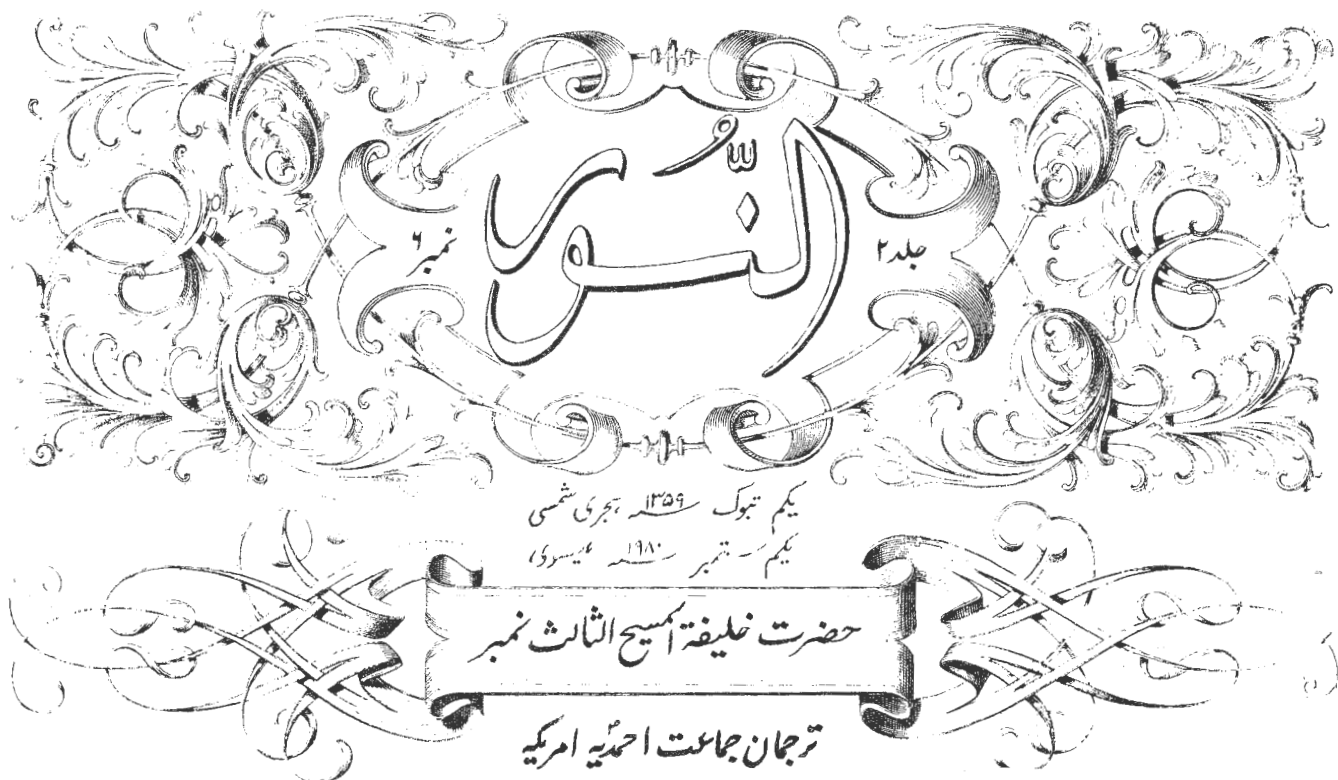 النُّور
جلد ۲
نمبر ۶
یکم تبوک ۱۳۵۹ ہجری شمسی
یکم ستمبر ۱۹۸۰ عیسوی
حضرت خلیفۃ المسیح الثالث نمبر
ترجمان جماعت احمدیہ امریکہ